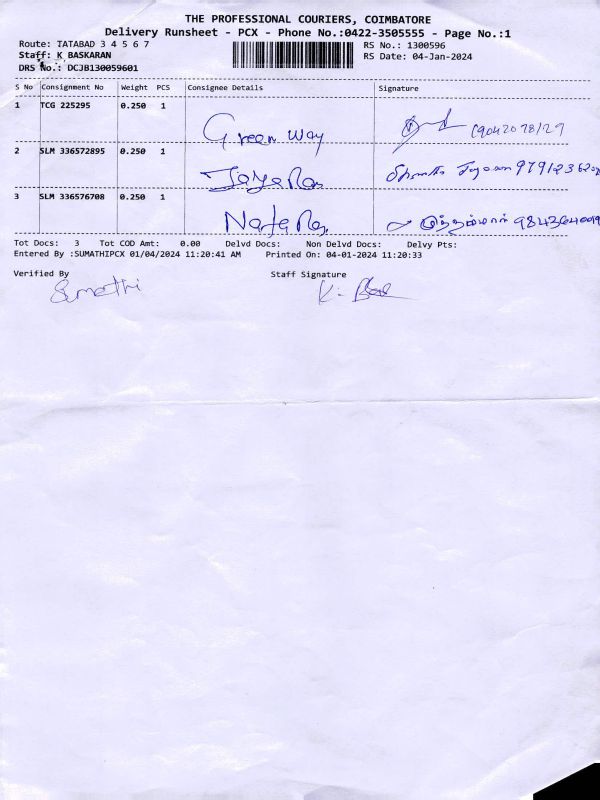 THE PROFESSIONAL COURIERS, COIMBATORE
Delivery Runsheet - PCX - Phone No.:0422-3505555 - Page No.:1
Route: TATABAD 3 4 5 6 7 RS No.: 1300596
Staff: K BASKARAN RS Date: 04-Jan-2024
DRS No.: DCJB130059601
S No Consignment No Weight PCS Consignee Details Signature
1 TCG 225295 0.250 1 Green Way
2 SLM 336572895 0.250 1
3 SLM 336576708 0.250 1
Tot Docs: 3 Tot COD Amt: 0.00 Delvd Docs: Non Delvd Docs: Delvy Pts:
Entered By :SUMATHIPCX 01/04/2024 11:20:41 AM Printed On: 04-01-2024 11:20:33
Verified By Staff Signature
Sumathi